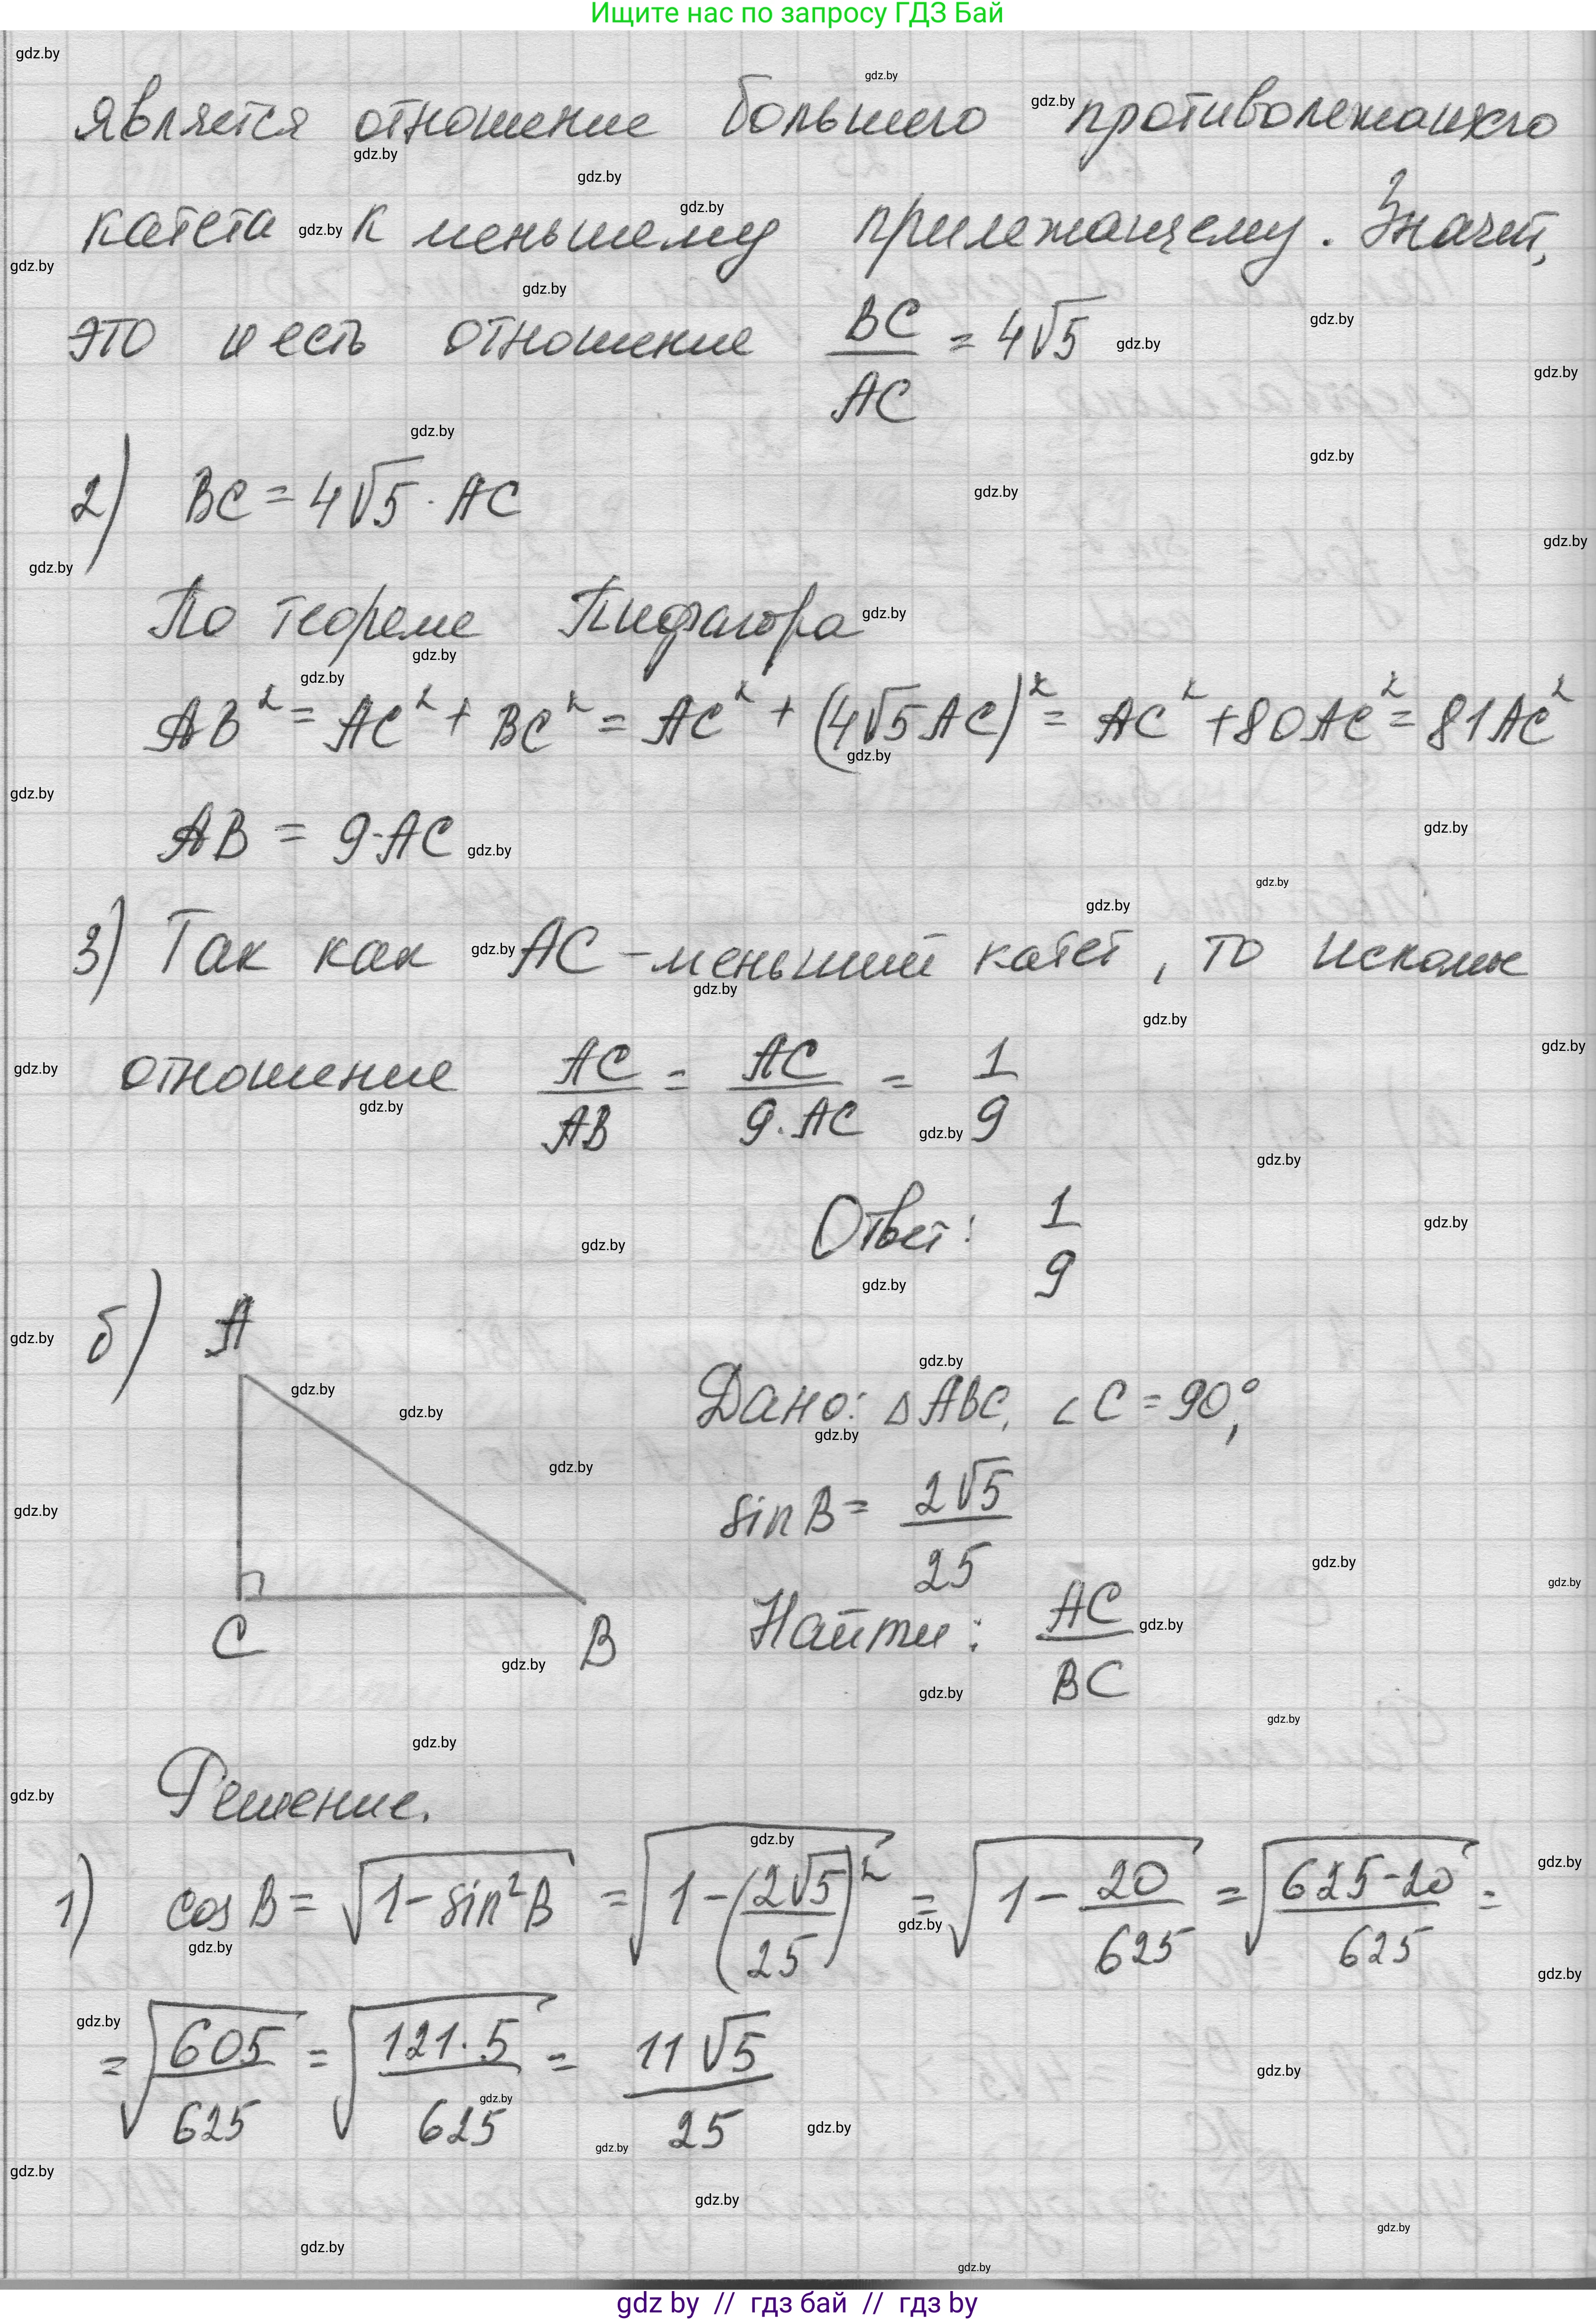 Ищите нас по запросу ГДЗ Бай
является отношение большего противолежащего
катета к меньшему прилежащему. Значит,
это и есть отношение BC/AC = 4√5
2) BC = 4√5 · AC
По теореме Пифагора
AB² = AC² + BC² = AC² + (4√5 AC)² = AC² + 80AC² = 81AC²
AB = 9·AC
3) Так как AC - меньший катет, то искомое
отношение AC/AB = AC/9·AC = 1/9
Ответ: 1/9
б) A
C B
Дано: △ABC, ∠C = 90°,
sin B = 2√5/25
Найти: AC/BC
Решение.
1) cos B = √(1 - sin²B) = √(1 - (2√5/25)²) = √(1 - 20/625) = √((625-20)/625) =
= √(605/625) = √(121·5/625) = 11√5/25
gdz by // гдз бай // гдз by